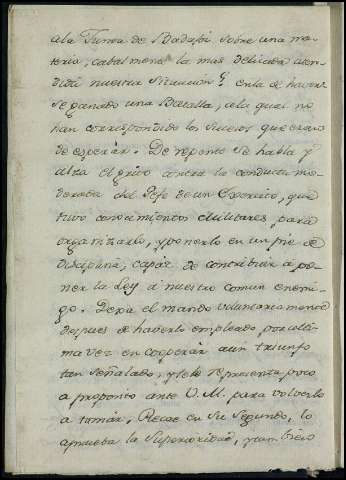 a la Junta de Badajoz sobre una ma-
teria, cabalmente la mas delicada aten-
dida nuestra situacion qe. en la de haver-
se ganado una Batalla, a la qual no
han correspondido los sucesos que eran
de esperar. De repente se habla y
alza el grito contra la conducta mo-
derada del Gefe de un Exercito, que
tuvo conocimientos Militares, para
organizarlo, y ponerlo en un pie de
disciplina, capaz de contribuir a po-
ner la Ley a nuestro comun enemi-
go. Dexa el mando voluntariamente
despues de haverlo empleado por ulti-
ma vez en cooperar a un triunfo
tan señalado, y se le representa poco
a proposito ante V. M. para volverlo
a tomar, Recae en su segundo, lo
aprueba la Superioridad, y tambien